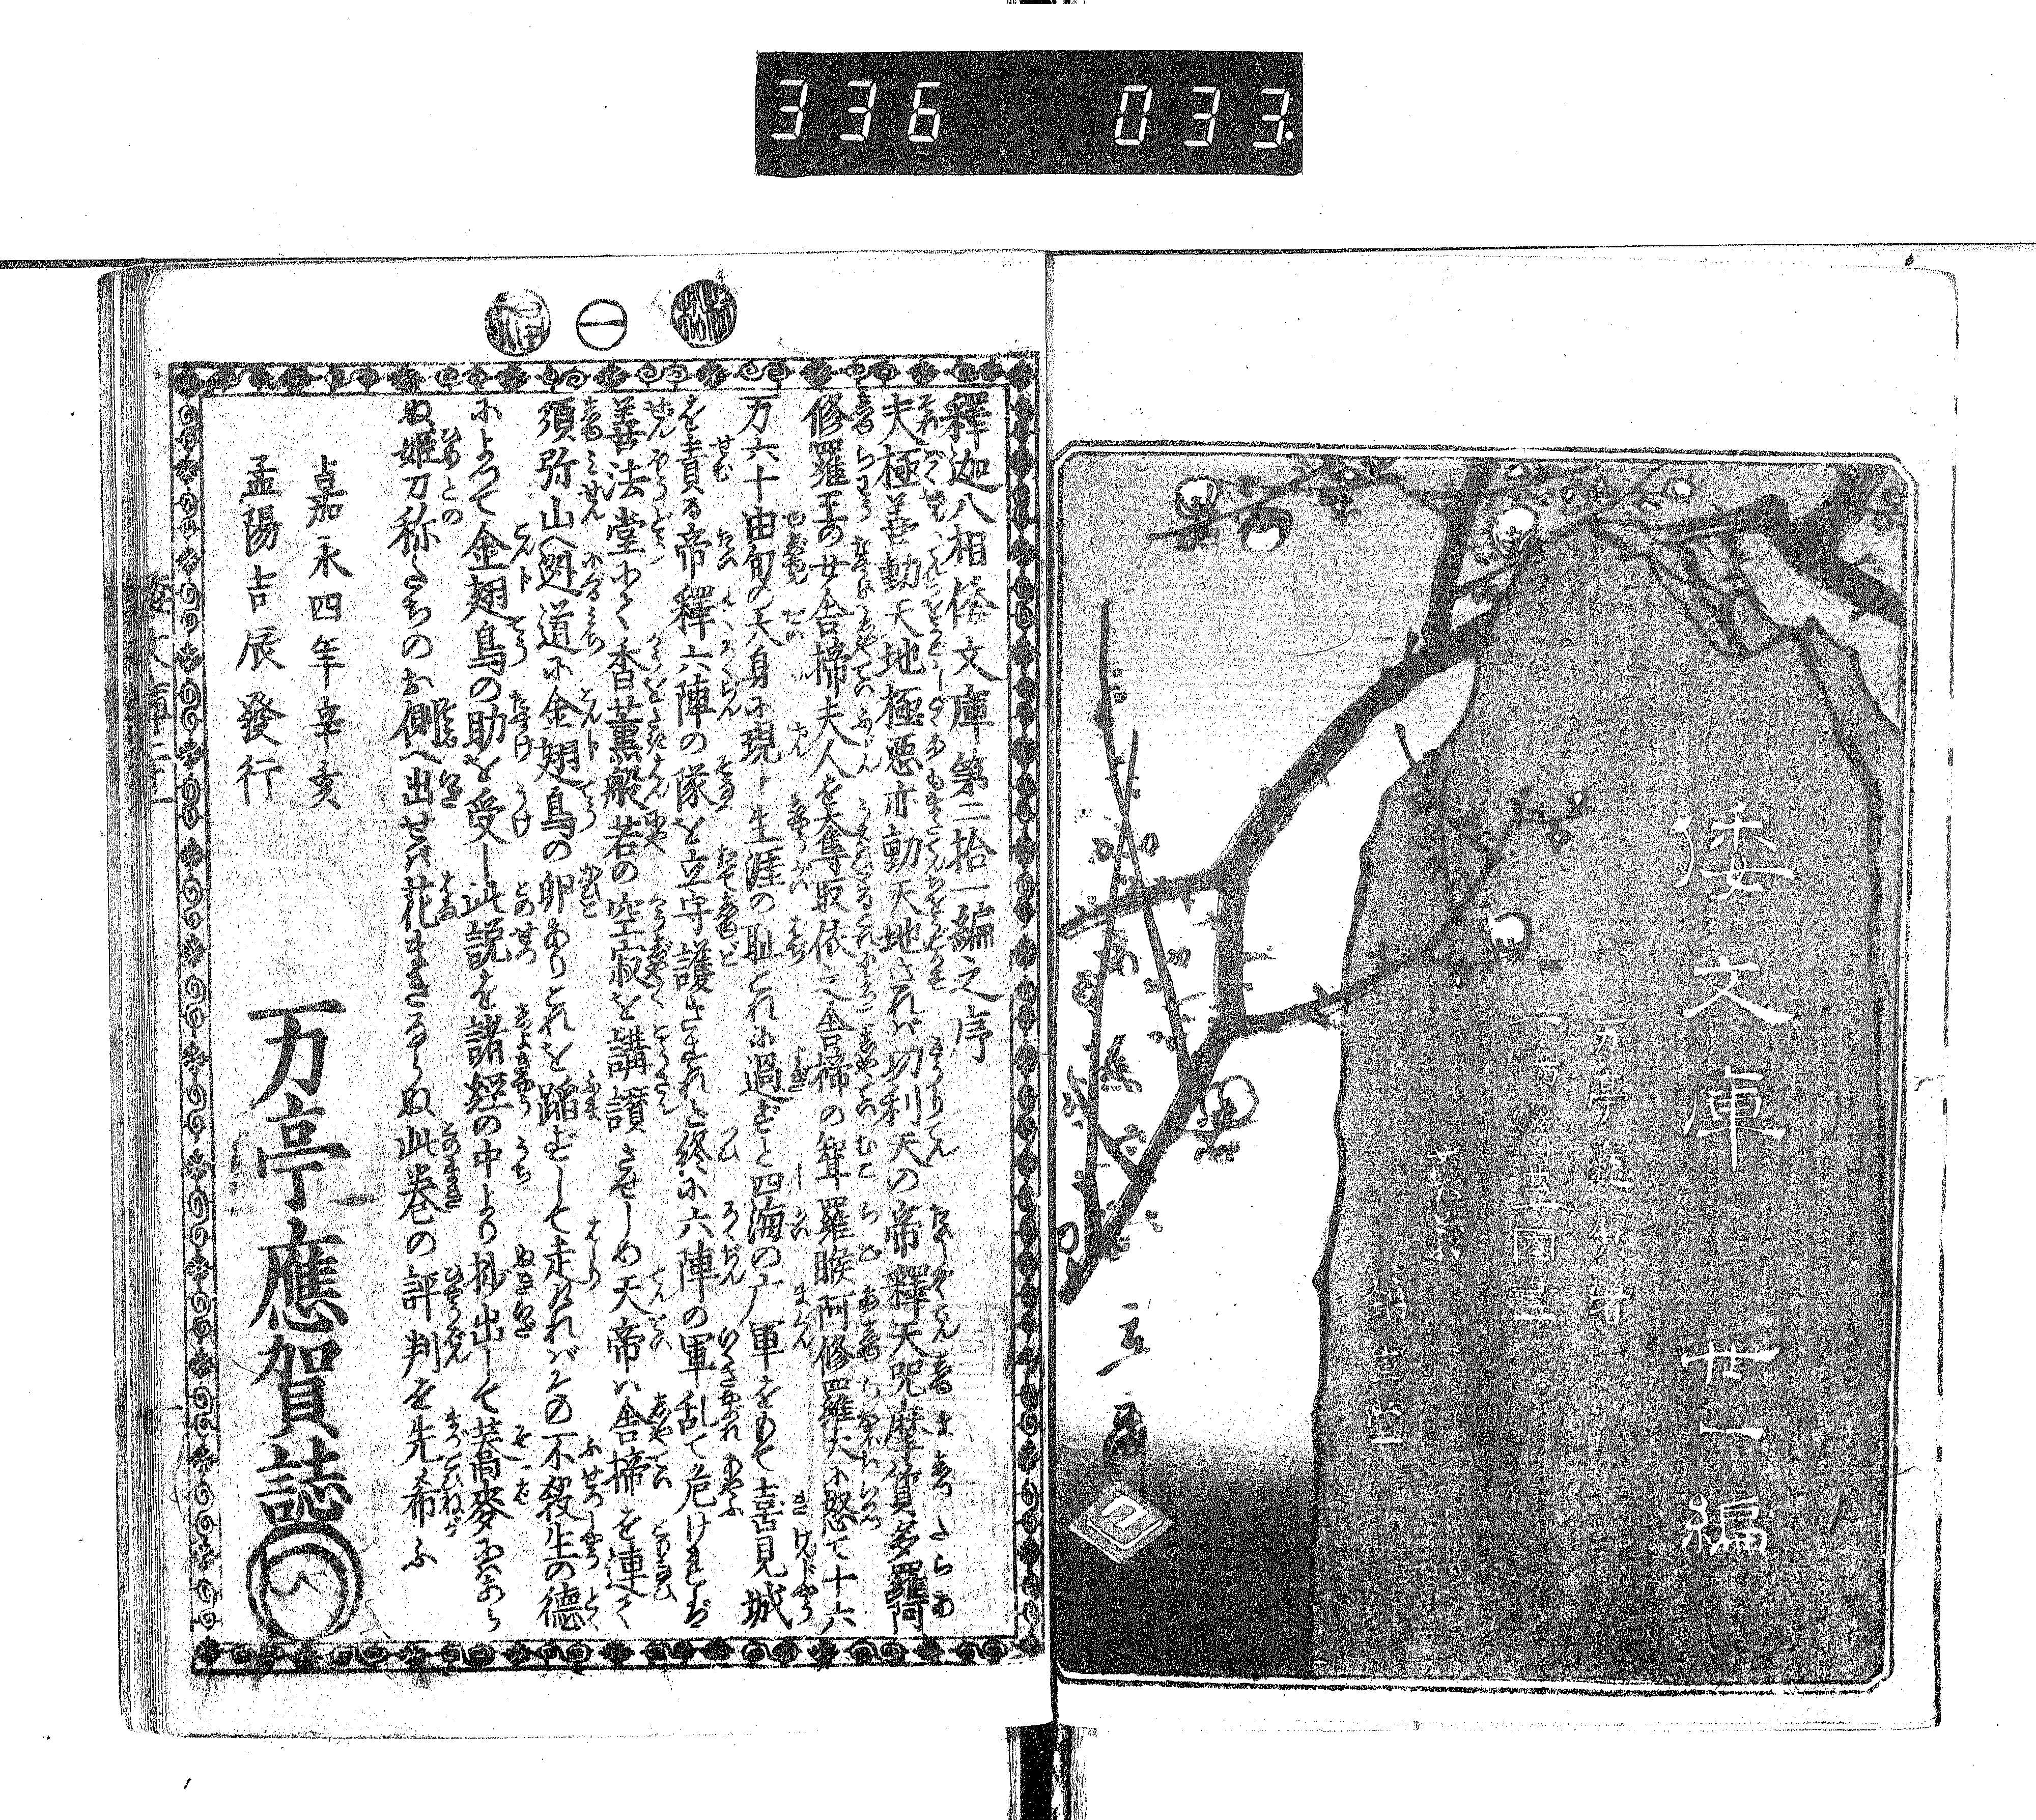 336 033
倭文庫 廿一編
万亭應賀著
一陽齋豊國画
錦重堂
釋迦八相倭文庫第二拾一編之序
夫極善動天地極悪亦動天地されバ忉利天の帝釋天呪麿質多羅阿
修羅王の女舎掃夫人を奪取依之舎掃の聟羅睺阿修羅大に怒て十六
万六十由旬の大身に現し生涯の恥これに過ずと四海の广軍をもて喜見城
を責る帝釋六陣の隊を立守護さすれと終に六陣の軍乱て危けれバ
善法堂にて香薫般若の空寂を講讃させしめ天帝ハ舎掃を連て
須弥山へ逃道に金翅鳥の卵ありこれを踏ずして走けれバその不殺生の德
によつて金翅鳥の助を受し此説を諸經の中より抜出して蕎麥にハあら
ぬ姫刀称たちのお側へ出せバ花まきならぬ此巻の評判を先希ふ
嘉永四年辛亥
孟陽吉辰發行
万亭應賀誌